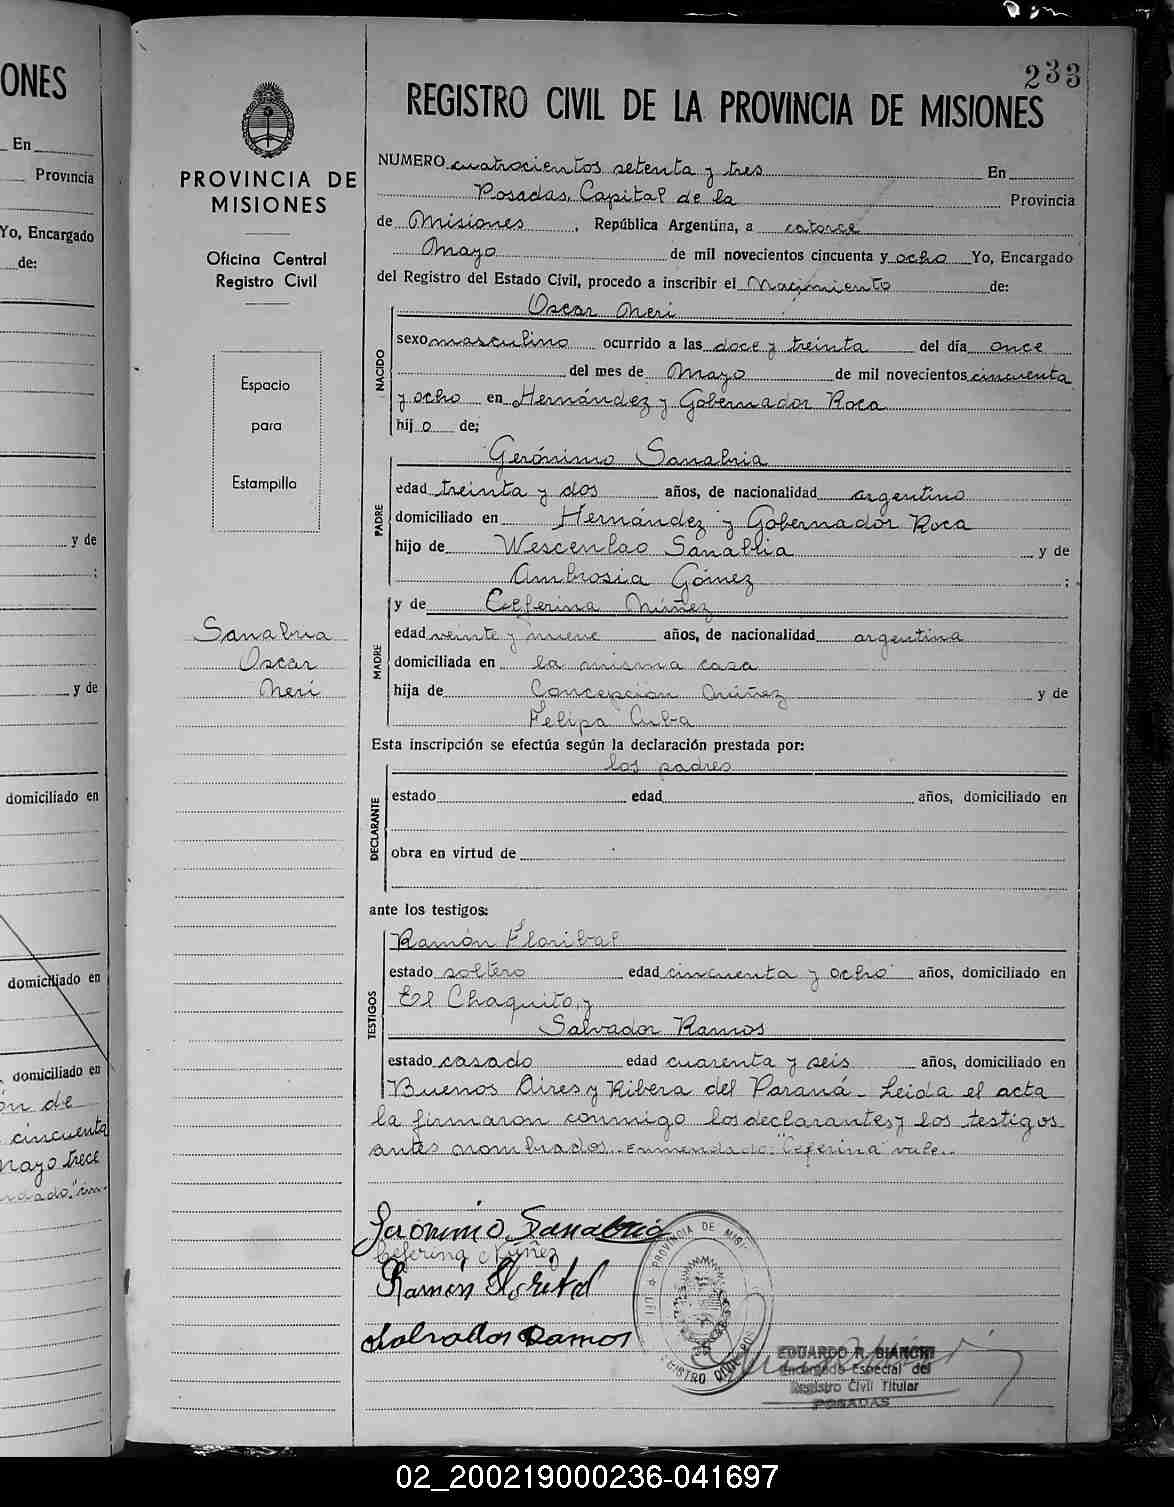 ONES
En
Provincia
Yo, Encargado
de:
y de
;
y de
domiciliado en
domiciliado en
domiciliado en
ón de
cincuenta
mayo trece
233
PROVINCIA DE
MISIONES
Oficina Central
Registro Civil
Espacio
para
Estampilla
Sanabria
Oscar
Neri
REGISTRO CIVIL DE LA PROVINCIA DE MISIONES
NUMERO cuatrocientos setenta y tres En
Posadas, Capital de la Provincia
de Misiones, República Argentina, a catorce
Mayo de mil novecientos cincuenta y ocho Yo, Encargado
del Registro del Estado Civil, procedo a inscribir el Nacimiento de:
NACIDO
Oscar Neri
sexo masculino ocurrido a las doce y treinta del día once
del mes de Mayo de mil novecientos cincuenta
y ocho en Hernández y Gobernador Roca
hij o de;
PADRE
Gerónimo Sanabria
edad treinta y dos años, de nacionalidad argentino
domiciliado en Hernández y Gobernador Roca
hijo de Wescenlao Sanabria y de
Ambrosia Gómez ;
MADRE
y de Ceferina Núñez
edad veinte y nueve años, de nacionalidad argentina
domiciliada en la misma casa
hija de Concepción Núñez y de
Felipa Cuba
Esta inscripción se efectúa según la declaración prestada por:
los padres
DECLARANTE
estado edad años, domiciliado en
obra en virtud de
ante los testigos:
TESTIGOS
Ramón Floribal
estado soltero edad cincuenta y ocho años, domiciliado en
El Chaquito, y
Salvador Ramos
estado casado edad cuarenta y seis años, domiciliado en
Buenos Aires y Ribera del Paraná - Leida el acta
la firmaron conmigo los declarantes y los testigos
antes nombrados. Enmendado: "Ceferina" vale.
Gerónimo Sanabria
Ceferina Núñez
Ramón
Salvador Ramos
PROVINCIA DE MISIONES
EDUARDO R. BIANCHI
Encargado Especial del
Registro Civil Titular
POSADAS
02_200219000236-041697